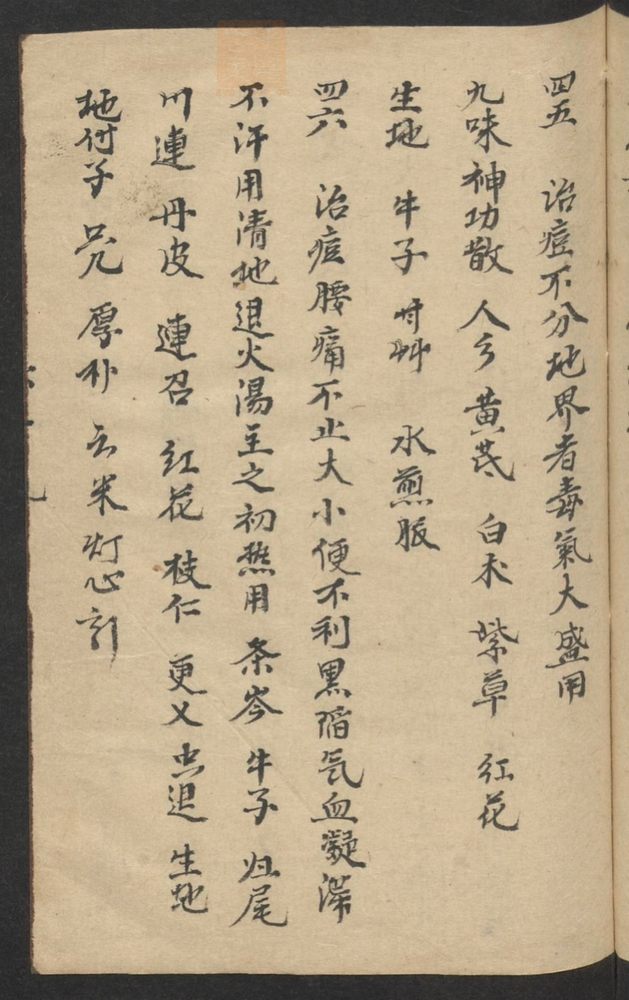 四五 治痘不分地界者毒氣大盛用
九味神功散 人參 黄芪 白术 紫草 红花
生地 牛子 甘艸 水煎服
四六 治痘腰痛不止大小便不利黑陷氣血凝滞
不汗用清地退火湯主之初熱用 条岑 牛子 归尾
川連 丹皮 連召 红花 枝仁 更乂 虫退 生地
地付子 厚朴 云米灯心引